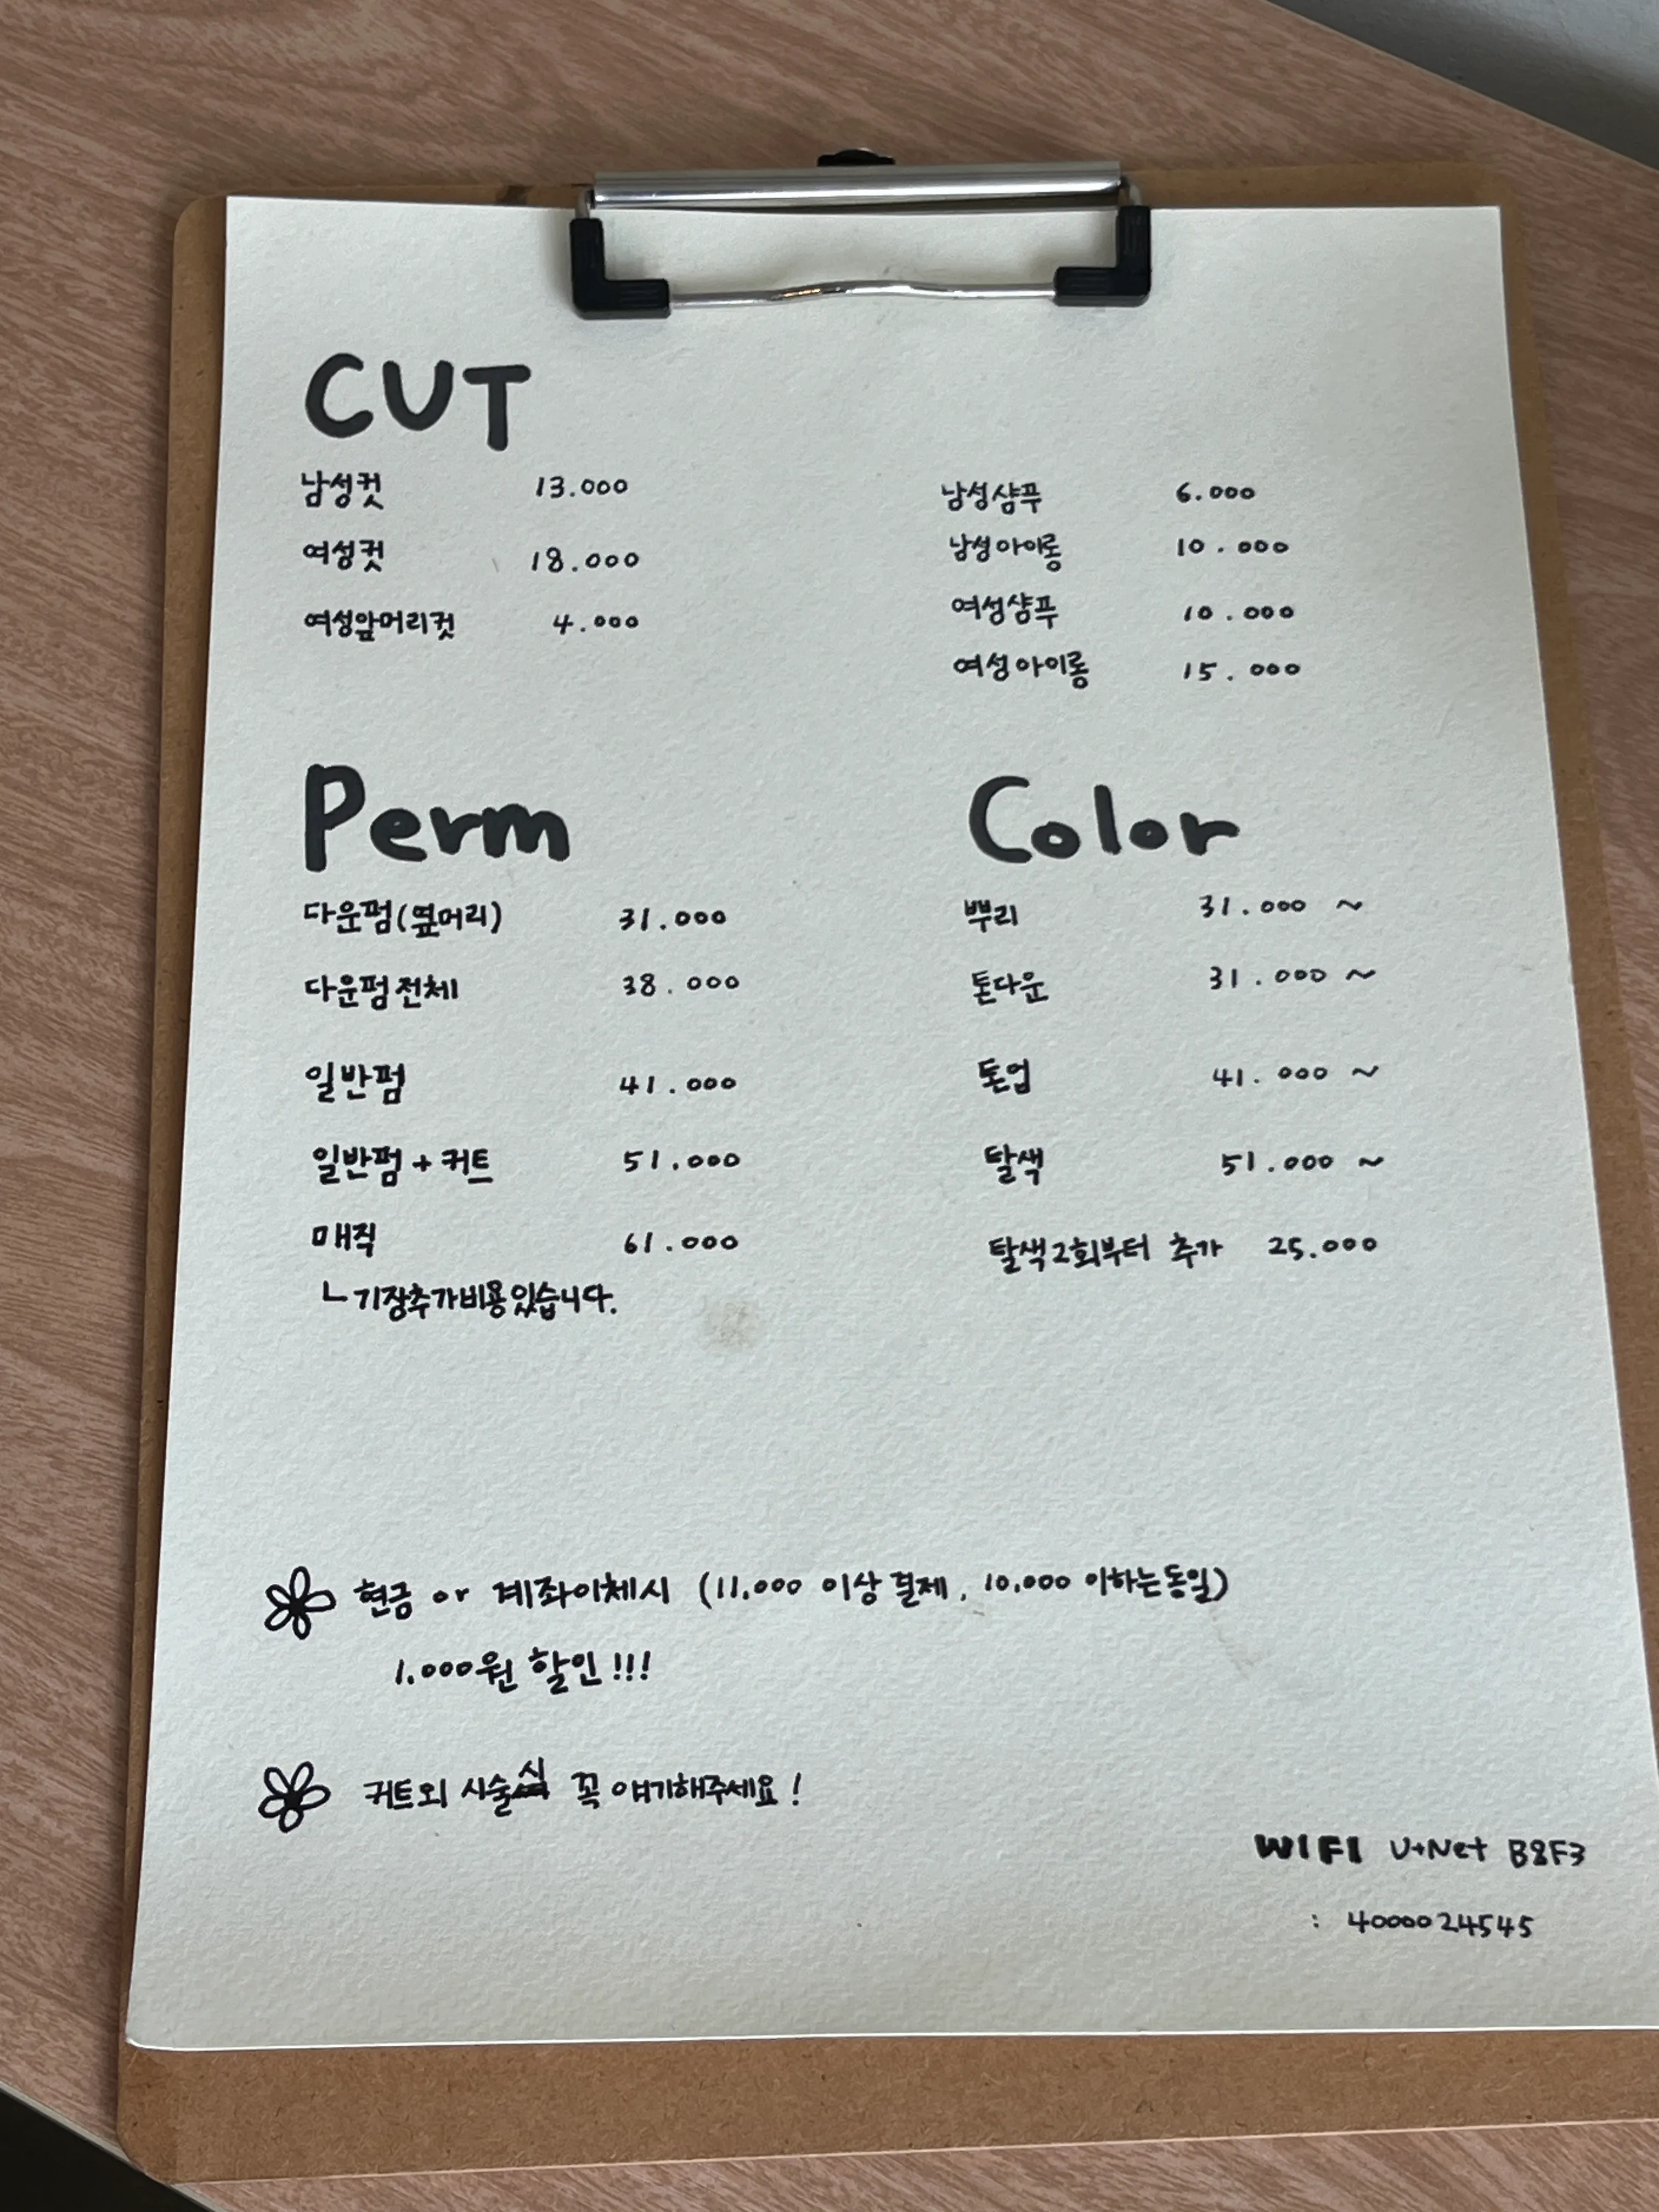 CUT
남성컷 13.000
여성컷 18.000
여성앞머리컷 4.000
남성샴푸 6.000
남성아이롱 10.000
여성샴푸 10.000
여성아이롱 15.000
Perm
다운펌(옆머리) 31.000
다운펌전체 38.000
일반펌 41.000
일반펌+커트 51.000
매직 61.000
ㄴ기장추가비용있습니다.
Color
뿌리 31.000 ~
톤다운 31.000 ~
톤업 41.000 ~
탈색 51.000 ~
탈색2회부터 추가 25.000
현금 or 계좌이체시 (11.000 이상 결제, 10.000 이하는동일)
1.000원 할인!!!
커트외 시술시 꼭 얘기해주세요!
WIFI U+Net B8F3
: 4000024545